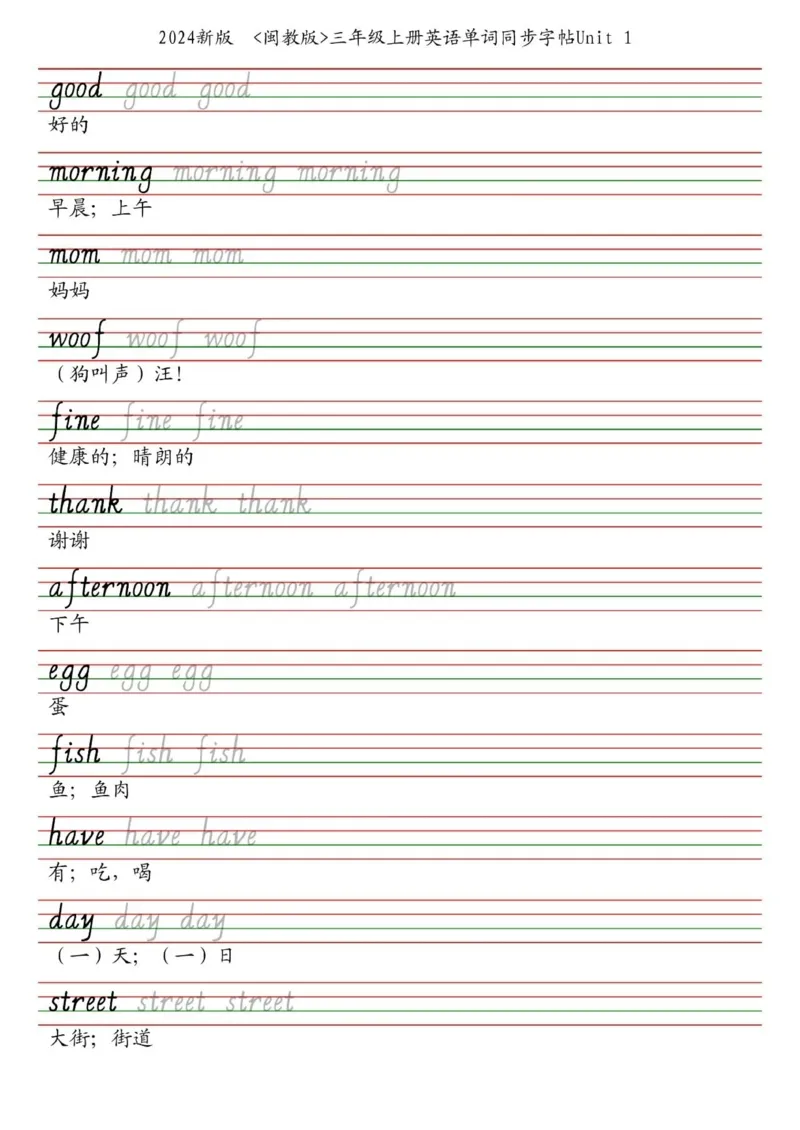 2024新版 <闽教版>三年级上册英语单词同步字帖Unit 1
good good good
好的
morning morning morning
早晨；上午
mom mom mom
妈妈
woof woof woof
（狗叫声）汪！
fine fine fine
健康的；晴朗的
thank thank thank
谢谢
afternoon afternoon afternoon
下午
egg egg egg
蛋
fish fish fish
鱼；鱼肉
have have have
有；吃，喝
day day day
（一）天；（一）日
street street street
大街；街道